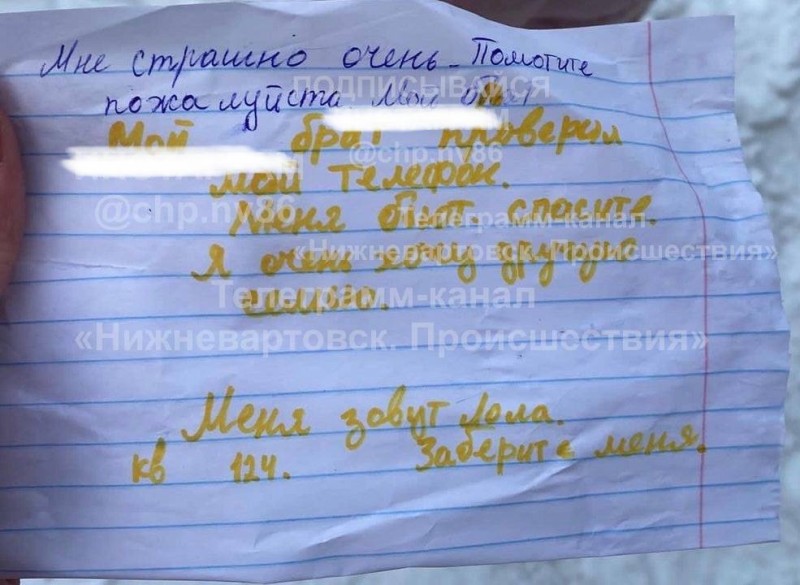 Мне страшно очень. Помогите
ПОДПИСЫВАЙСЯ
пожалуйста Мой
Мой брат проверил
@chp.nv86
мой телефон.
@chp.nv86
Меня бьют спасите.
Телеграмм-канал
«Нижневартовск. Происшествия»
Я очень хочу другую
семью.
Телеграмм-канал
«Нижневартовск. Происшествия»
Меня зовут Лола.
кв 124. Заберите меня.